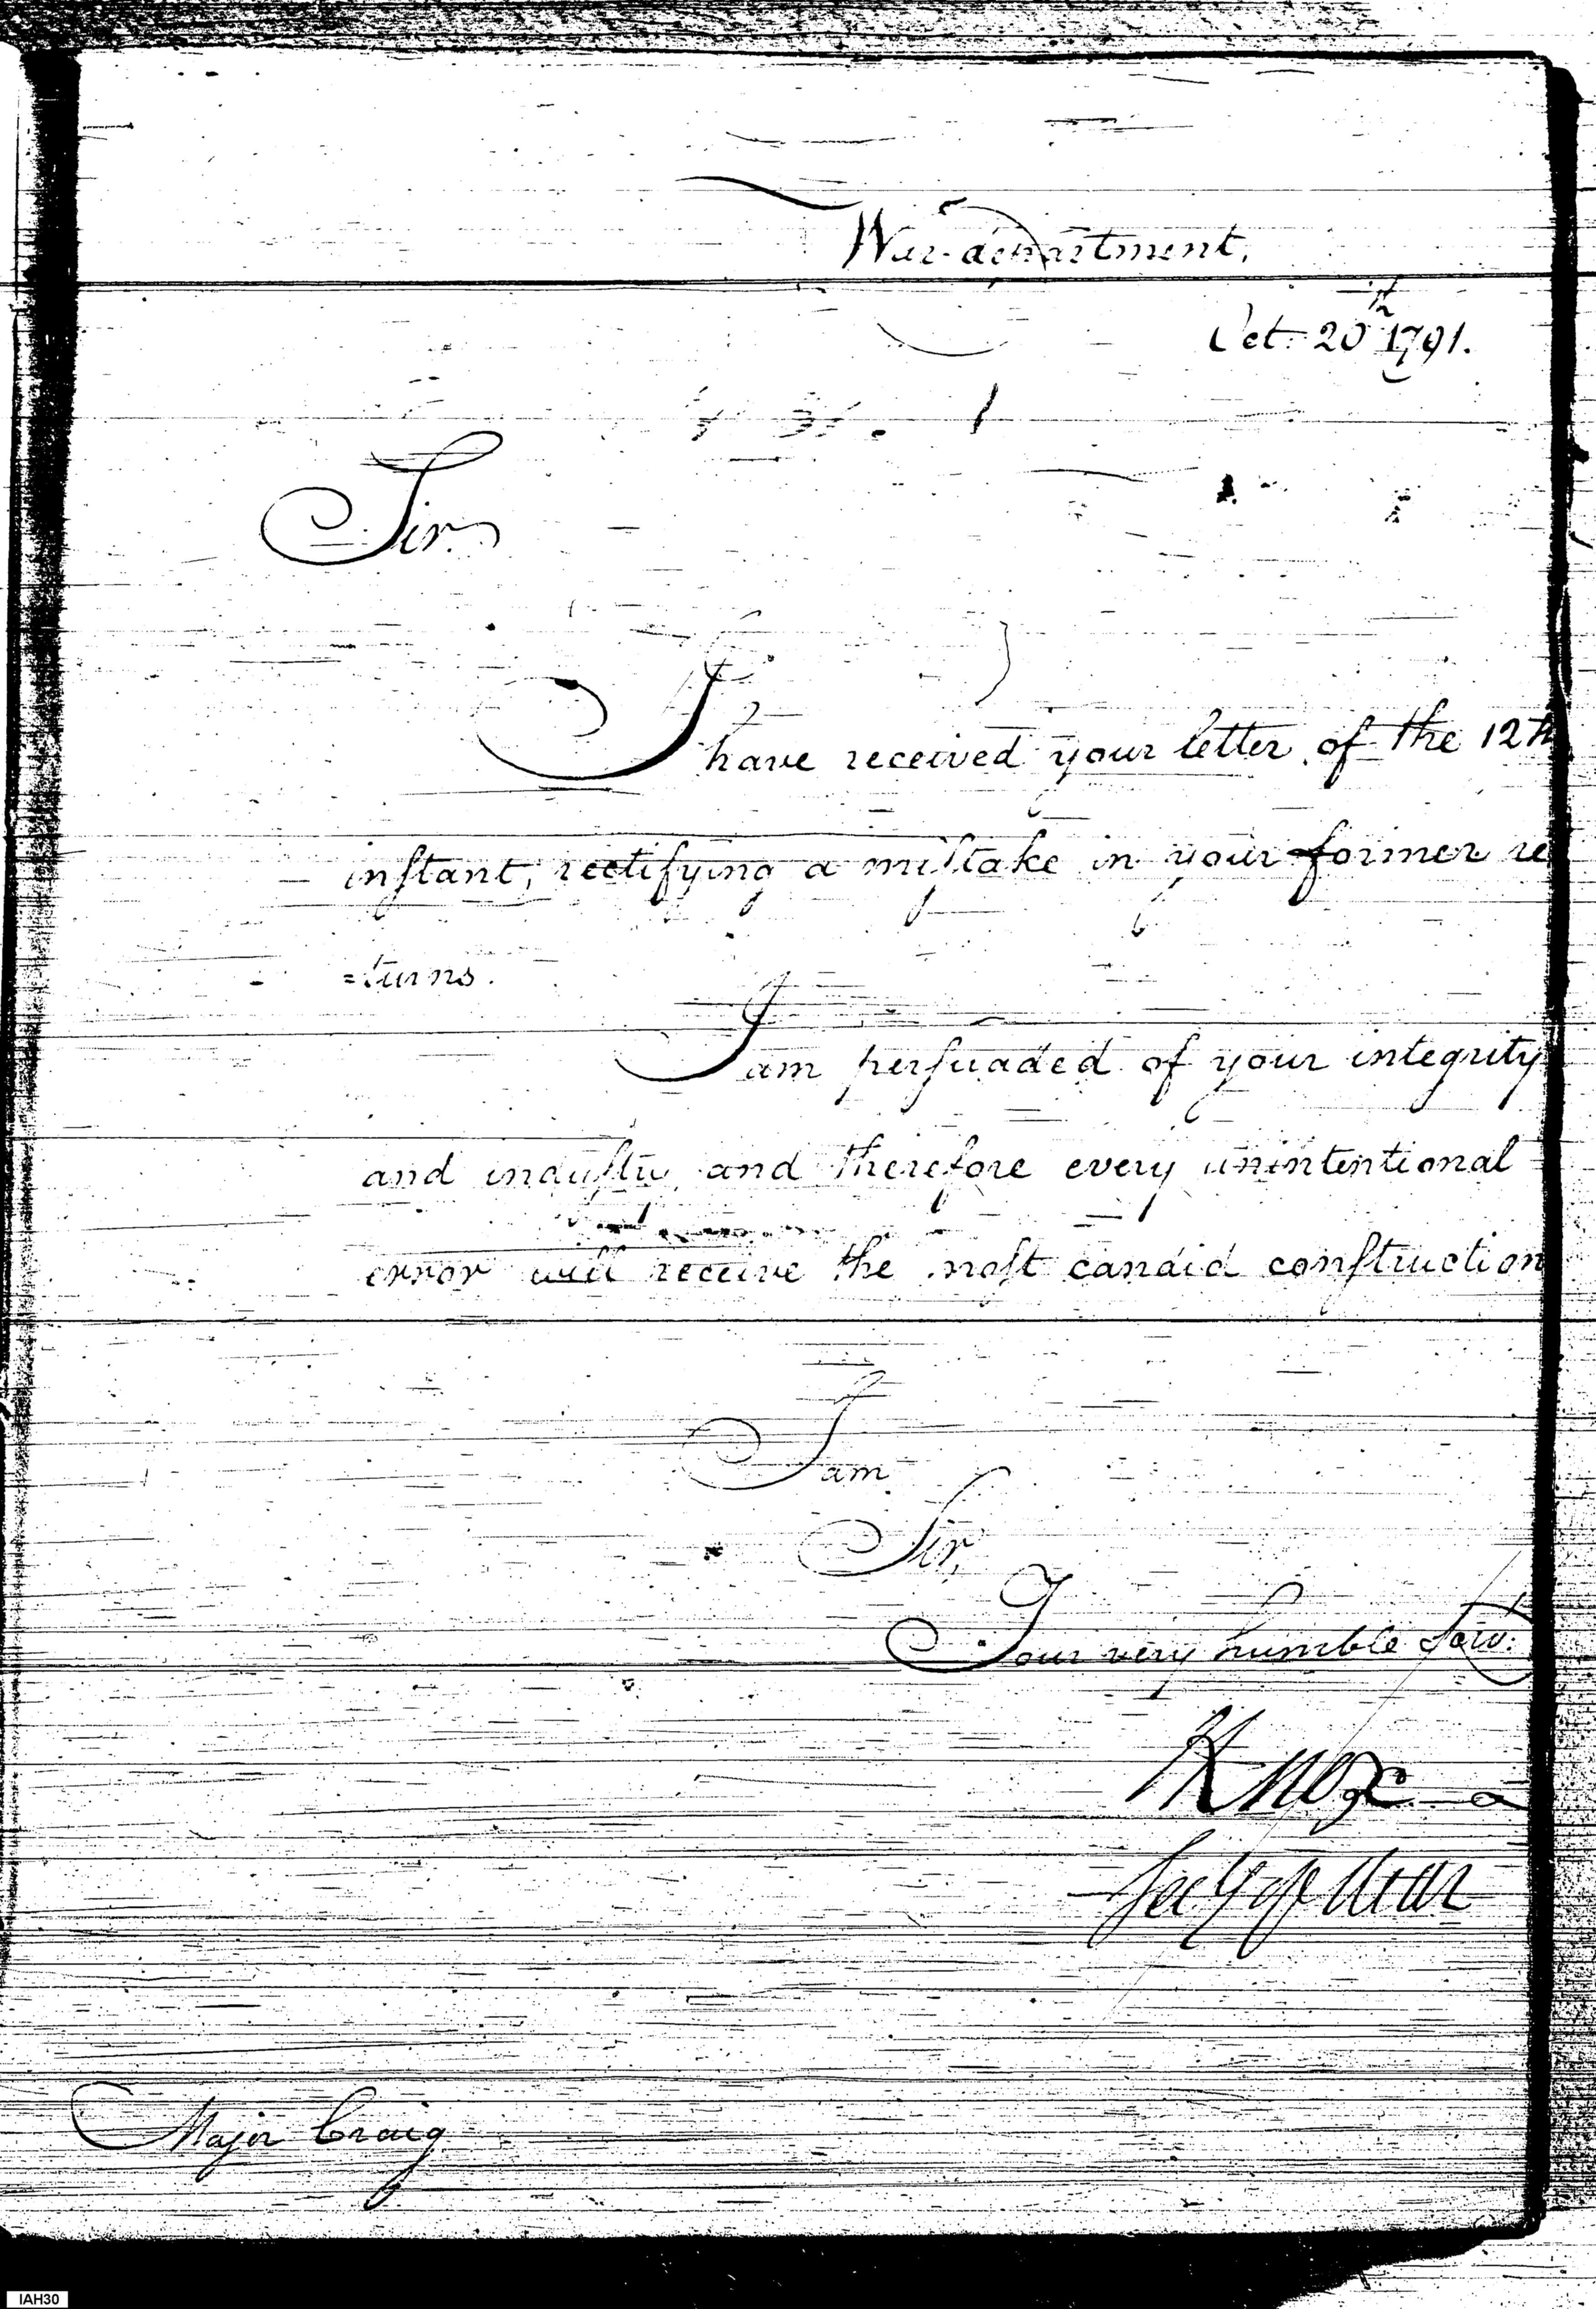 War-department,
Oct. 20th 1791.
Sir.
I have received your letter of the 12th
inſtant, rectifying a miſtake in your former re
=turns.
I am perſuaded of your integrity
and induſtry, and therefore every unintentional
error will receive the moſt candid conſtruction
I am
Sir,
Your very humble Serv:
HKnox
Secy of War
Major Craig
IAH30